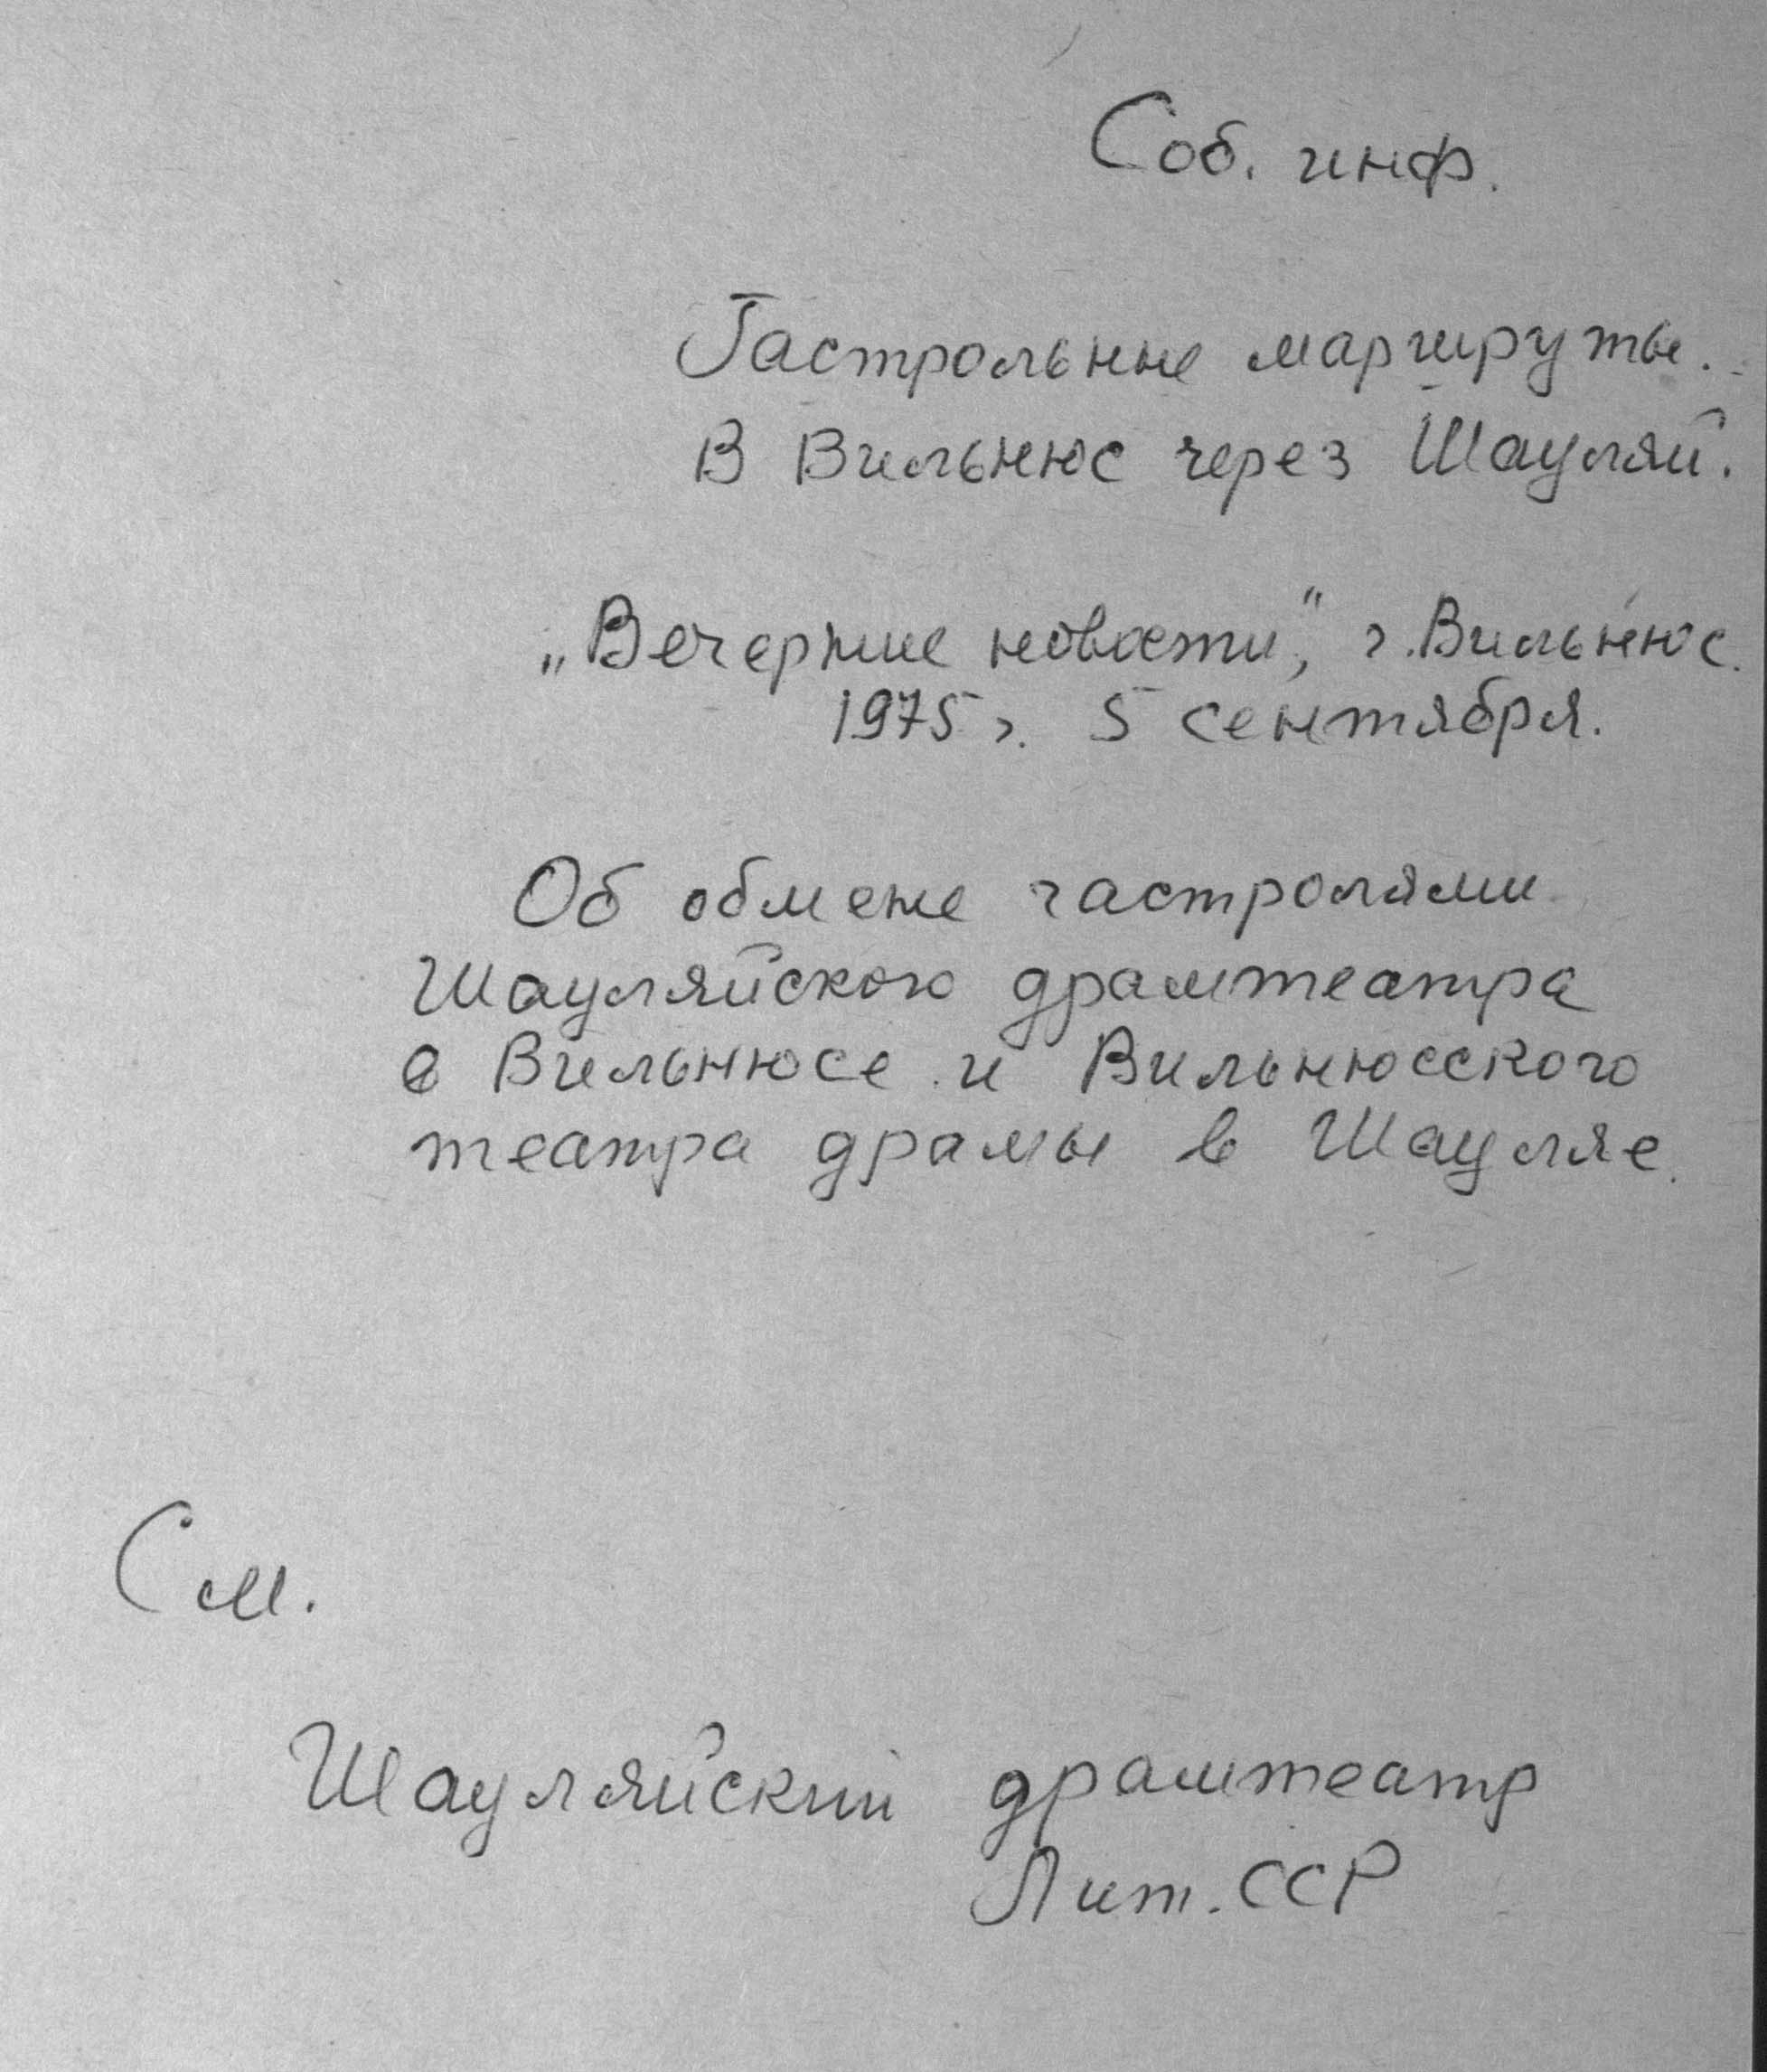 Соб. инф.
Гастрольные маршруты.
В Вильнюс через Шауляй.
„Вечерние новости", г. Вильнюс.
1975 г. 5 сентября.
Об обмене гастролями
Шауляйского драмтеатра
в Вильнюсе и Вильнюсского
театра драмы в Шауляе.
См.
Шауляйский драмтеатр
Лит. ССР